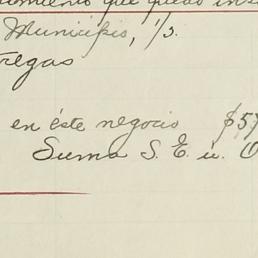 que quedó ins
Municipio, 1/3.
regas
en éste negocio $57
Suma S. E. u. O